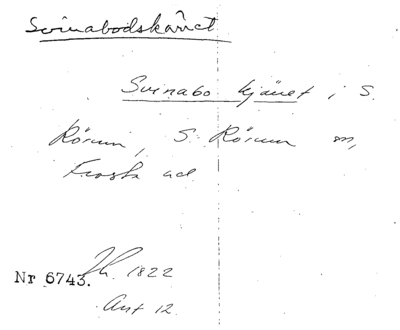 Svinabodskäret
Svinabo kjäret i S.
Rörum, S. Rörum sn,
Frosta hd
Nr 6743. Lh. 1822
Akt 12.